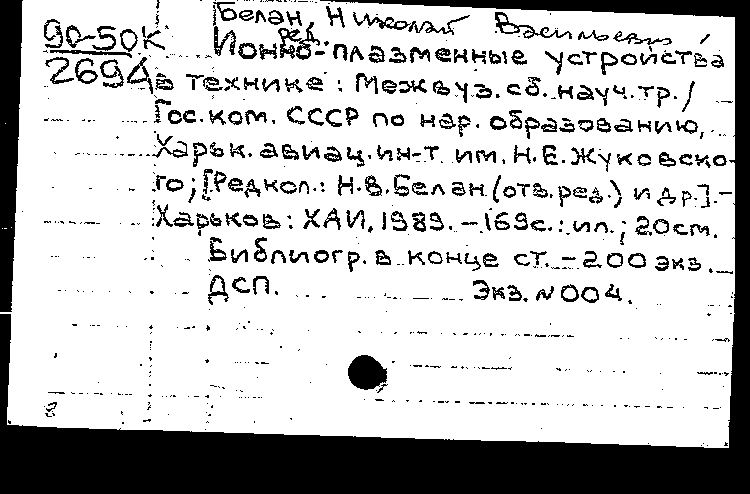 Белан, Николай Васильевич,
ред.
90-50К
2694
Ионно-плазменные устройства
в технике: Межвуз. сб. науч. тр. /
Гос. ком. СССР по нар. образованию,
Харьк. авиац. ин-т им. Н.Е. Жуковско-
го; [Редкол.: Н.В. Белан (отв. ред.) и др.]. -
Харьков: ХАИ, 1989. - 169с.: ил.; 20см.
Библиогр. в конце ст. - 200 экз.
ДСП. Экз. №004.